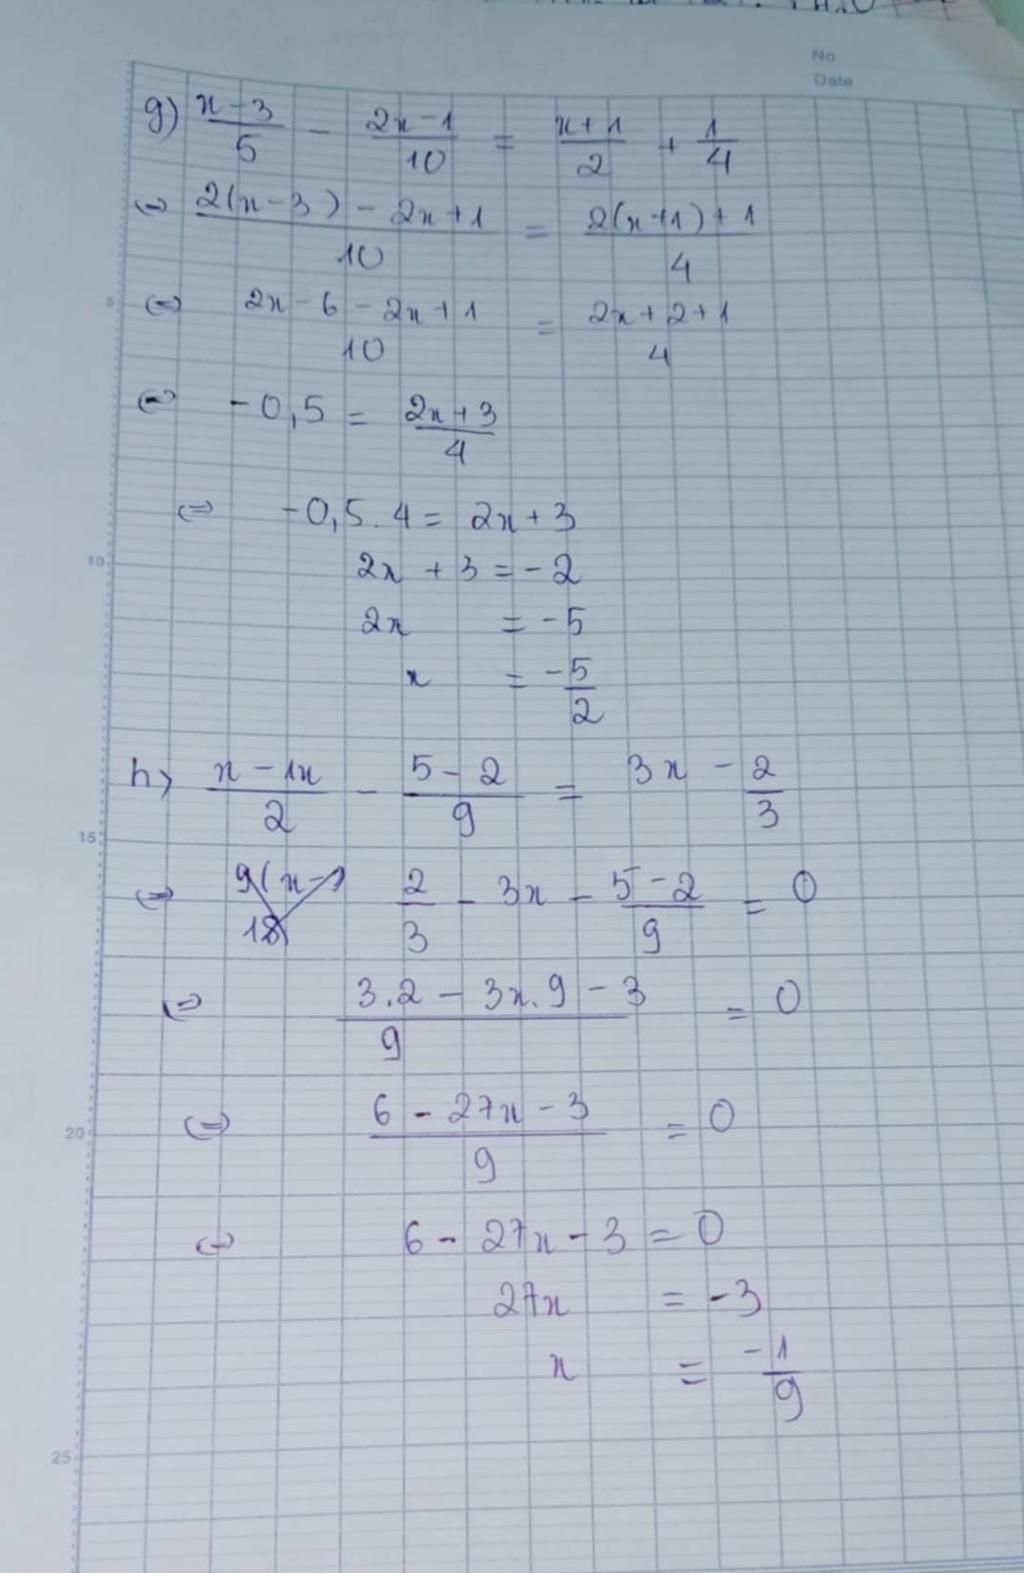 No
Date
g) (x-3)/5 - (2x-1)/10 = (x+1)/2 + 1/4
⇔ (2(x-3) - 2x+1)/10 = (2(x+1)+1)/4
⇔ (2x-6-2x+1)/10 = (2x+2+1)/4
⇔ -0,5 = (2x+3)/4
⇔ -0,5.4 = 2x+3
2x + 3 = -2
2x = -5
x = -5/2
h) (x-1x)/2 - (5-2)/9 = 3x - 2/3
⇔ 2/3 - 3x - (5-2)/9 = 0
⇔ (3.2 - 3x.9 - 3)/9 = 0
⇔ (6 - 27x - 3)/9 = 0
⇔ 6 - 27x - 3 = 0
27x = -3
x = -1/9
5
10
15
20
25